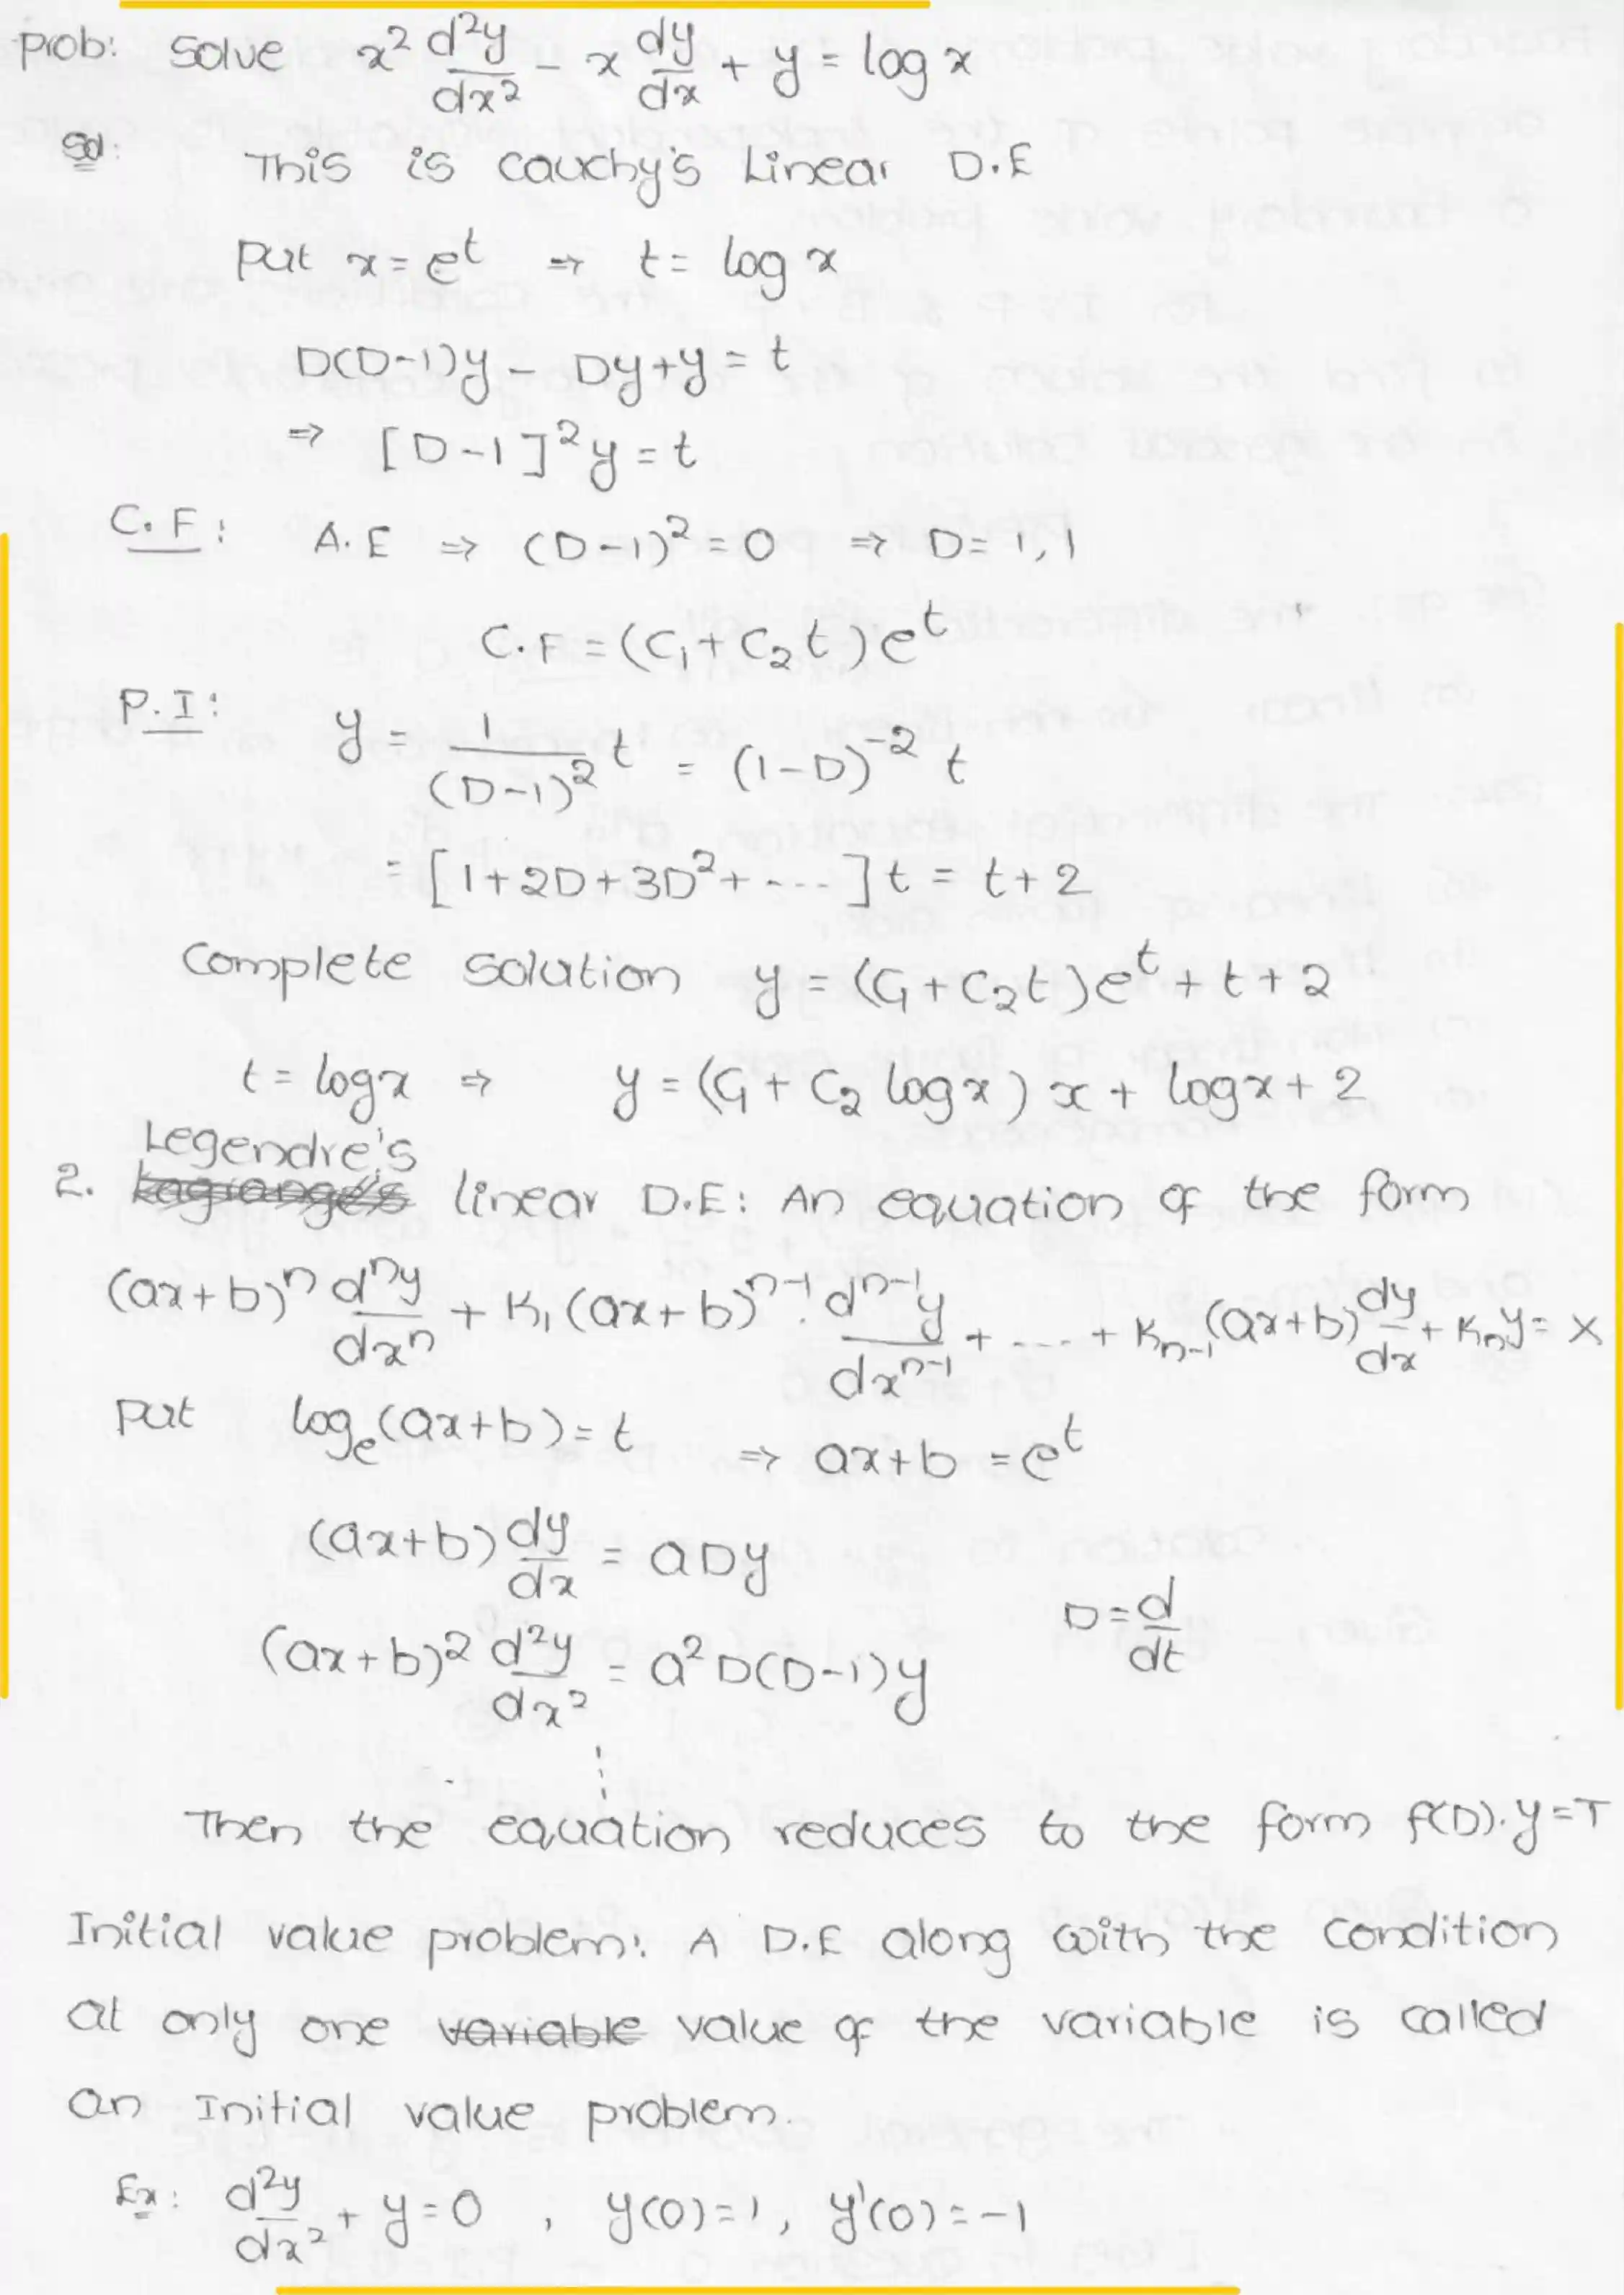 Prob: Solve x² d²y/dx² - x dy/dx + y = log x
Sol: This is Cauchy's Linear D.E
Put x = e^t ⇒ t = log x
D(D-1)y - Dy + y = t
⇒ [D-1]² y = t
C.F: A.E ⇒ (D-1)² = 0 ⇒ D = 1, 1
C.F = (C₁ + C₂ t) e^t
P.I: y = 1/(D-1)² t = (1-D)^-2 t
= [1 + 2D + 3D² + ----] t = t + 2
Complete solution y = (C₁ + C₂t) e^t + t + 2
t = log x ⇒ y = (C₁ + C₂ log x) x + log x + 2
Legendre's
2. Lagrange's linear D.E: An equation of the form
(ax+b)^n d^n y/dx^n + K₁ (ax+b)^(n-1) . d^(n-1) y/dx^(n-1) + .... + K_(n-1) (ax+b) dy/dx + K_n y = X
Put log_e (ax+b) = t ⇒ ax+b = e^t
(ax+b) dy/dx = aDy
D = d/dt
(ax+b)² d²y/dx² = a² D(D-1)y
⋮
Then the equation reduces to the form f(D).y = T
Initial value problem: A D.E along with the condition
at only one variable value of the variable is called
an Initial value problem.
Ex: d²y/dx² + y = 0 , y(0) = 1, y'(0) = -1